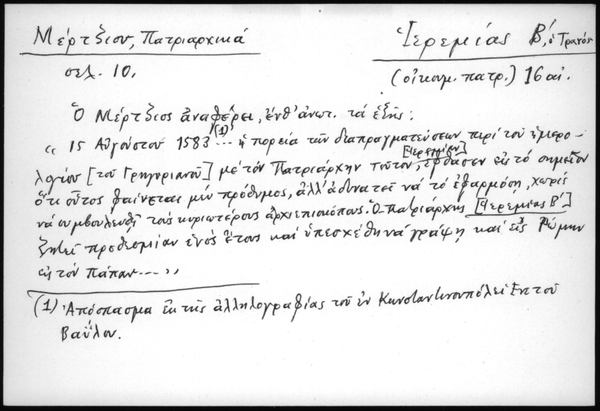 Μέρτζιου, Πατριαρχικά
σελ. 10.
Ἱερεμίας Β΄, ὁ Τρανός
(οἰκουμ. πατρ.) 16 αἰ.
Ὁ Μέρτζιος ἀναφέρει, ἔνθ' ἀνωτ. τά ἑξῆς:
« 15 Αὐγούστου 1583 ... (1) ἡ πορεία τῶν διαπραγματεύσεων περί τοῦ ἡμερο-
λογίου [τοῦ Γρηγοριανοῦ] μέ τόν Πατριάρχην τοῦτον, [Ἱερεμίαν] ἔφθασεν εἰς τό σημεῖον
ὅτι οὗτος φαίνεται μέν πρόθυμος, ἀλλ' ἀδυνατεῖ νά τό ἐφαρμόση, χωρίς
νά συμβουλευθῆ τούς κυριωτέρους ἀρχιεπισκόπους. Ὁ Πατριάρχης [Ἱερεμίας Β΄]
ζητεῖ προθεσμίαν ἑνός ἔτους καί ὑπεσχέθη νά γράψη καί εἰς Ρώμην
εἰς τόν Πάπαν ... »
(1) Ἀπόσπασμα ἐκ τῆς ἀλληλογραφίας τοῦ ἐν Κωνσταντινουπόλει ἐκ τοῦ
Βαΐλου.